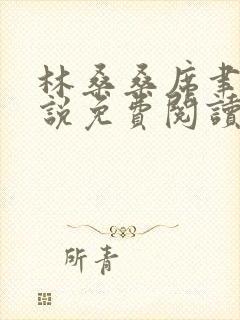 林桑桑席聿
說免費閱讀
所青